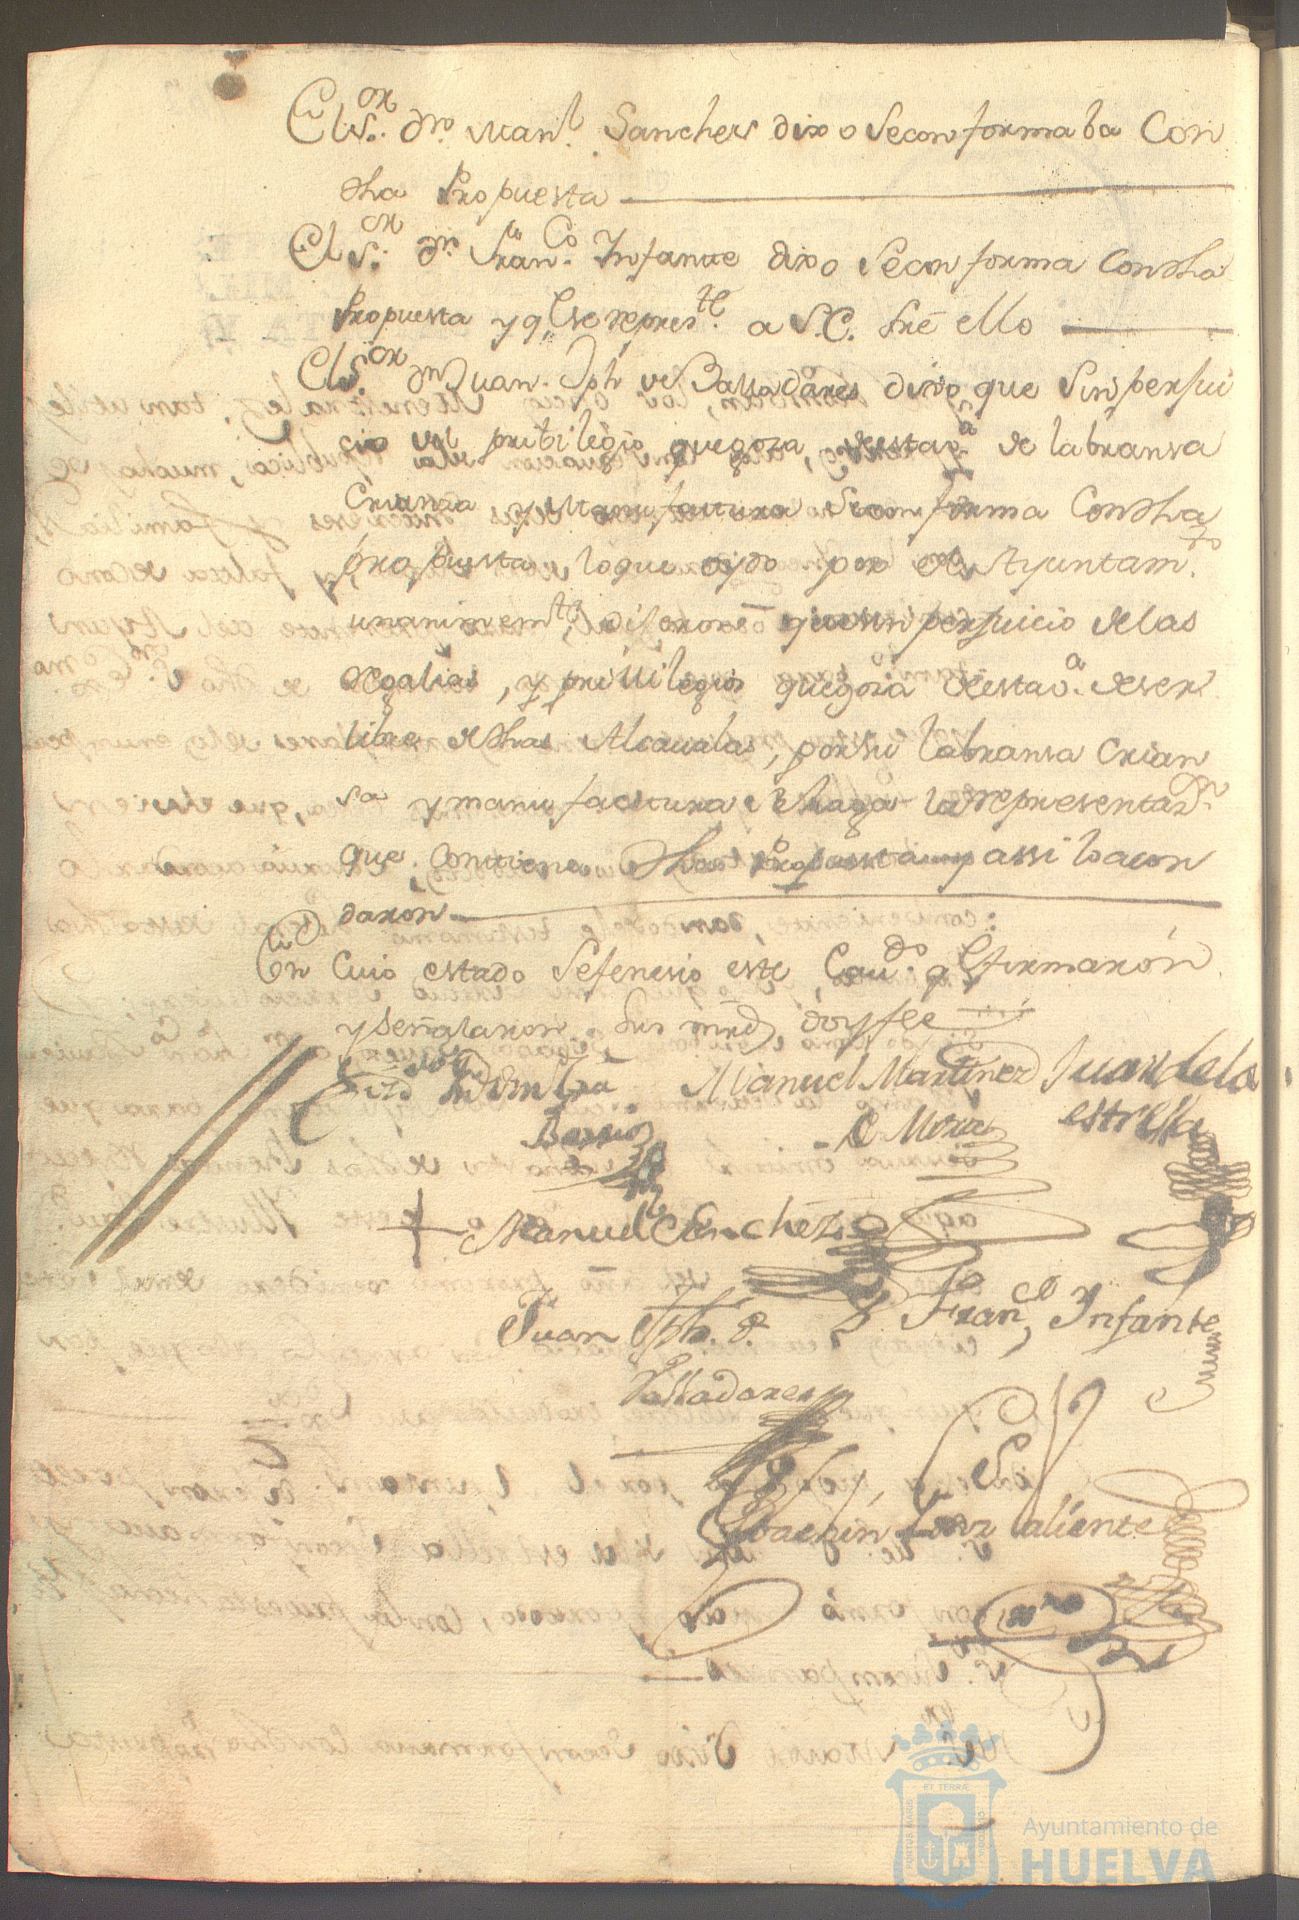 El S.or dn. Man.l Sanches dixo se conformaba Con
dha Propuesta
El S.or dn. Fran.co Infante dixo se conforma Con dha
Propuesta y q.e se repres.te a S.E. sre ello
El S.or dn Juan Jph de Balladares dixo que sin perjui
cio del pribilegio que goza, de esta v.a de labransa
Crianza y Manufactura se conforma Con dha
propuesta, lo que oydo por el Ayuntam.to
unanimem.te dixeron que sin perjuicio de las
regalias, y privilegios que goza de esta v.a de ser
libre de dhas Alcavalas, por su labransa Crian
sa y manufactura se haga la representaz.on
que Conviene dha Propuesta y assi lo acor
daron
En Cuio estado se fenesio este Cav.do q.e firmaron
y señalaron sus mrds. doy fee
Manuel Martinez Juan de la
Barrios de Mora estrella
Manuel Sanchez
Juan Jph. d. Fran.co Infante
Valladares
Joachin Valiente
Ayuntamiento de
HUELVA